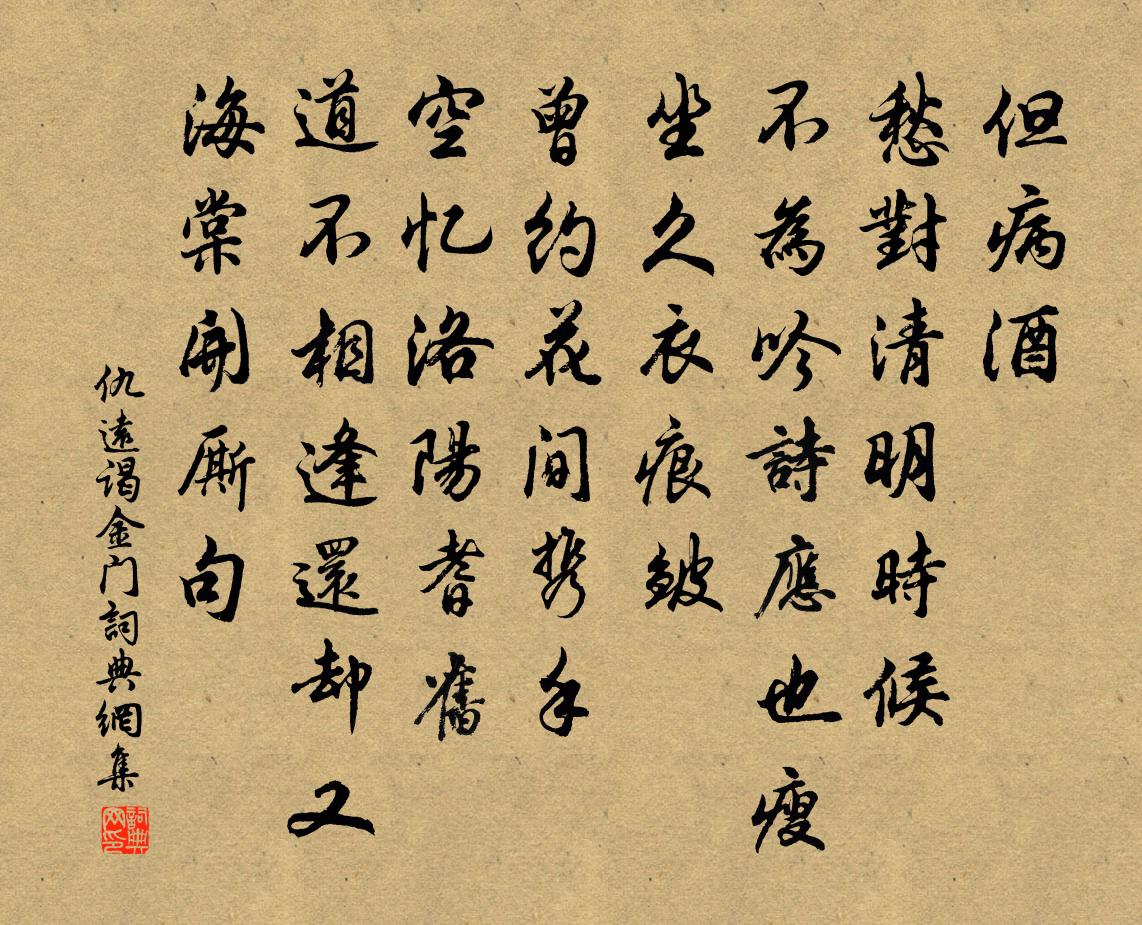 但病酒
愁對清明時候
不為吟詩應也瘦
坐久衣痕皺
曾約花間携手
空忆洛陽耆舊
道不相逢還却又
海棠開厮句
仇遠謁金门詞典網集
詞典网印